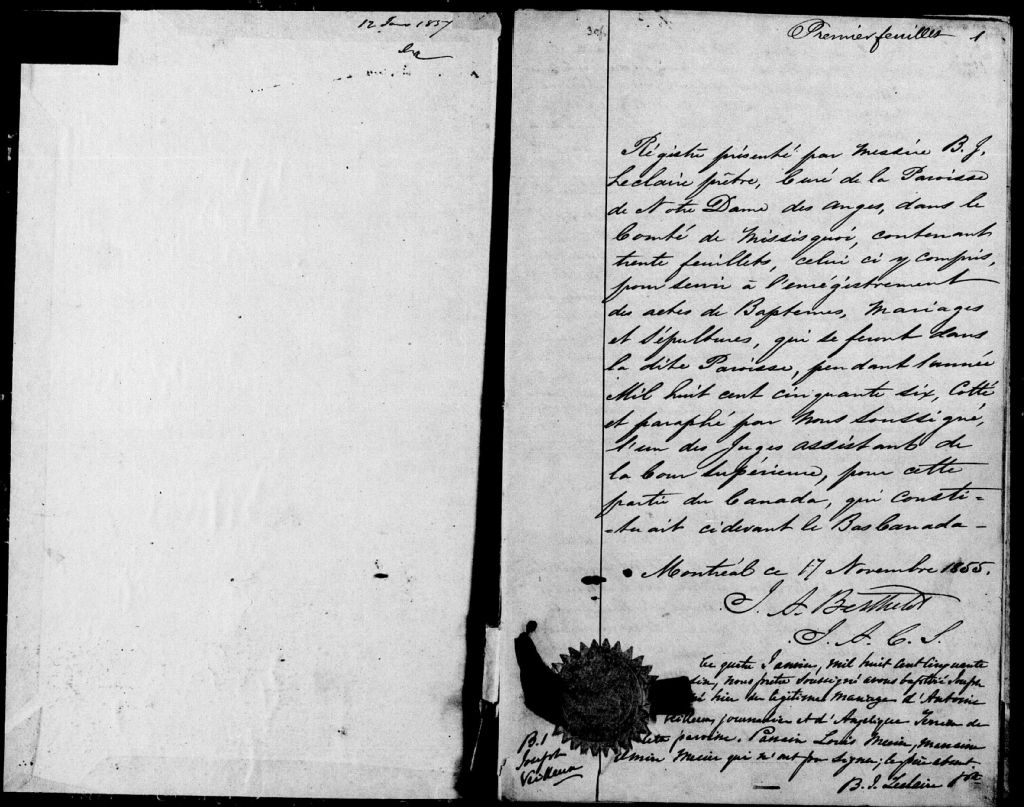 12 Janv 1857
Premier feuillet 1
Régistre présenté par Messire B. J.
Leclaire prêtre, Curé de la Paroisse
de Notre Dame des anges, dans le
Comté de Missisquoi, contenant
trente feuillets, celui ci y compris,
pour servir à l'enrégistrement
des actes de Baptemes, Mariages
et Sépultures, qui se feront dans
la dite Paroisse, pendant l'année
Mil huit cent cinquante six, Cotté
et paraphé par Nous Soussigné,
l'un des Juges assistant de
la Cour Supérieure, pour cette
partie du Canada, qui Consti-
-tuait cidevant le Bas Canada -
Montréal ce 17 Novembre 1855.
J. A. Berthelot
J. A. C. S.
B. 1
Joseph
Le quatre Janvier, mil huit cent cinquante
six, nous prêtre soussigné avons baptisé Joseph
né hier du légitime mariage d'Antoine
journalier et d'Angelique de
paroisse. Parrain Louis Mercier, marraine
Mercier qui n'ont pu signer; le père absent.
B. J. Leclaire ptre